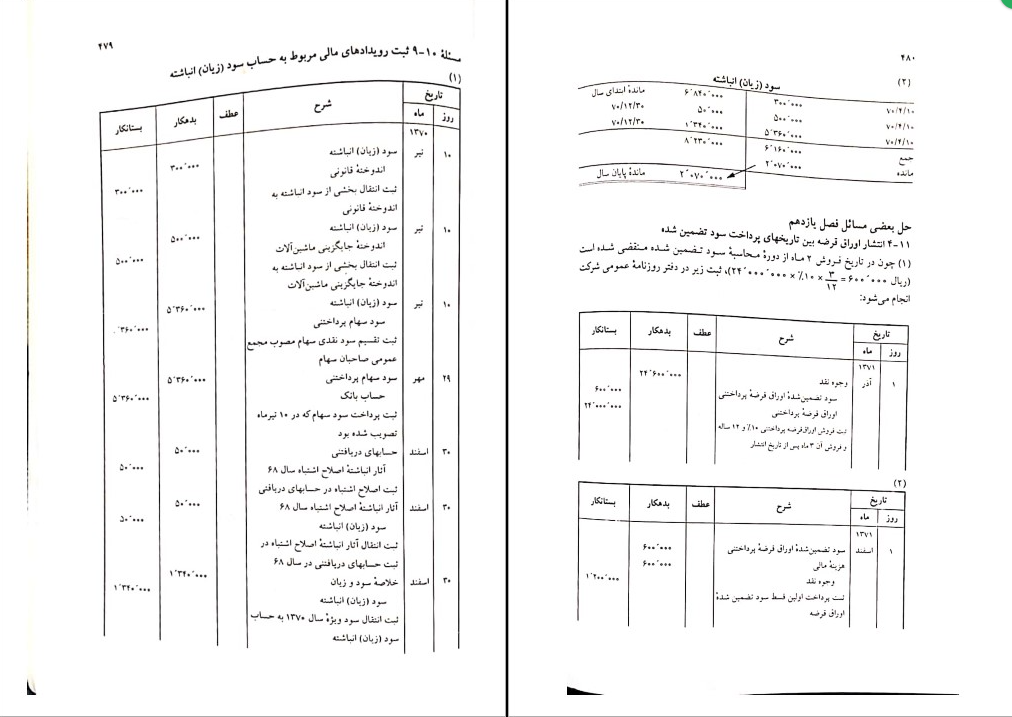 ۴۷۹
مسئلهٔ ۱۰-۹ ثبت رویدادهای مالی مربوط به حساب سود (زیان) انباشته
(۱)
تاریخ شرح عطف بدهکار بستانکار
روز ماه
۱۳۷۰
۱۰ تیر سود (زیان) انباشته ۳۰۰٬۰۰۰
اندوختهٔ قانونی ۳۰۰٬۰۰۰
ثبت انتقال بخشی از سود انباشته به
اندوختهٔ قانونی
۱۰ تیر سود (زیان) انباشته ۵۰۰٬۰۰۰
اندوختهٔ جایگزینی ماشین‌آلات ۵۰۰٬۰۰۰
ثبت انتقال بخشی از سود انباشته به
اندوختهٔ جایگزینی ماشین‌آلات
۱۰ تیر سود (زیان) انباشته ۵٬۳۶۰٬۰۰۰
سود سهام پرداختنی ۳۶۰٬۰۰۰
ثبت تقسیم سود نقدی سهام مصوب مجمع
عمومی صاحبان سهام
۲۹ مهر سود سهام پرداختنی ۵٬۳۶۰٬۰۰۰
حساب بانک ۵٬۳۶۰٬۰۰۰
ثبت پرداخت سود سهام که در ۱۰ تیرماه
تصویب شده بود
۳۰ اسفند حسابهای دریافتنی ۵۰٬۰۰۰
آثار انباشتهٔ اصلاح اشتباه سال ۶۸ ۵۰٬۰۰۰
ثبت اصلاح اشتباه در حسابهای دریافتی
۳۰ اسفند آثار انباشتهٔ اصلاح اشتباه سال ۶۸ ۵۰٬۰۰۰
سود (زیان) انباشته ۵۰٬۰۰۰
ثبت انتقال آثار انباشتهٔ اصلاح اشتباه در
ثبت حسابهای دریافتنی در سال ۶۸
۳۰ اسفند خلاصهٔ سود و زیان ۱٬۳۴۰٬۰۰۰
سود (زیان) انباشته ۱٬۳۴۰٬۰۰۰
ثبت انتقال سود ویژهٔ سال ۱۳۷۰ به حساب
سود (زیان) انباشته
۴۸۰
(۲)
سود (زیان) انباشته
۷۰/۴/۱۰ ۳۰۰٬۰۰۰ ۶٬۸۴۰٬۰۰۰ ماندهٔ ابتدای سال
۷۰/۴/۱۰ ۵۰۰٬۰۰۰ ۵۰٬۰۰۰ ۷۰/۱۲/۳۰
۷۰/۴/۱۰ ۵٬۳۶۰٬۰۰۰ ۱٬۳۴۰٬۰۰۰ ۷۰/۱۲/۳۰
جمع ۶٬۱۶۰٬۰۰۰ ۸٬۲۳۰٬۰۰۰
مانده ۲٬۰۷۰٬۰۰۰
۲٬۰۷۰٬۰۰۰ ماندهٔ پایان سال
حل بعضی مسائل فصل یازدهم
۱۱-۴ انتشار اوراق قرضه بین تاریخهای پرداخت سود تضمین شده
(۱) چون در تاریخ فروش ۲ ماه از دورهٔ محاسبهٔ سود تضمین شده منقضی شده است
(ریال ۶۰۰٬۰۰۰ = ۳/۱۲ × ۱۰٪ × ۲۴٬۰۰۰٬۰۰۰)، ثبت زیر در دفتر روزنامهٔ عمومی شرکت
انجام می‌شود:
تاریخ شرح عطف بدهکار بستانکار
روز ماه
۱۳۷۱
۱ آذر وجوه نقد ۲۴٬۶۰۰٬۰۰۰
سود تضمین‌شدهٔ اوراق قرضهٔ پرداختنی ۶۰۰٬۰۰۰
اوراق قرضهٔ پرداختنی ۲۴٬۰۰۰٬۰۰۰
ثبت فروش اوراق‌قرضه پرداختنی ۱۰٪ و ۱۲ ساله
و فروش آن ۳ ماه پس از تاریخ انتشار
(۲)
تاریخ شرح عطف بدهکار بستانکار
روز ماه
۱۳۷۱
۱ اسفند سود تضمین‌شدهٔ اوراق قرضهٔ پرداختنی ۶۰۰٬۰۰۰
هزینهٔ مالی ۶۰۰٬۰۰۰
وجوه نقد ۱٬۲۰۰٬۰۰۰
ثبت پرداخت اولین قسط سود تضمین شدهٔ
اوراق قرضه